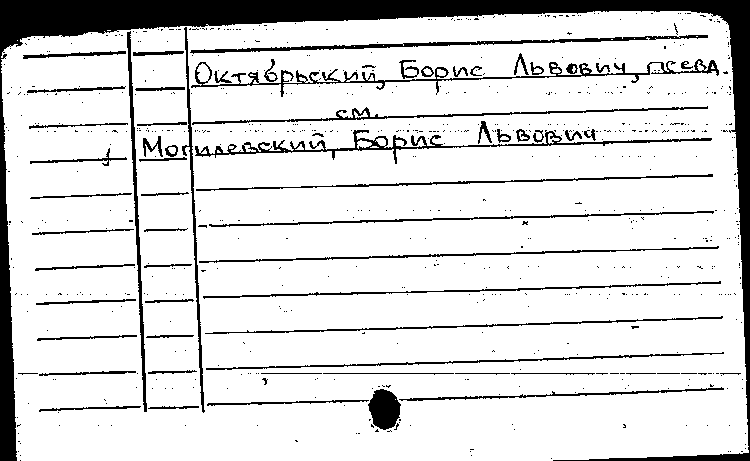 Октябрьский, Борис Львович, псевд.
см.
Могилевский, Борис Львович